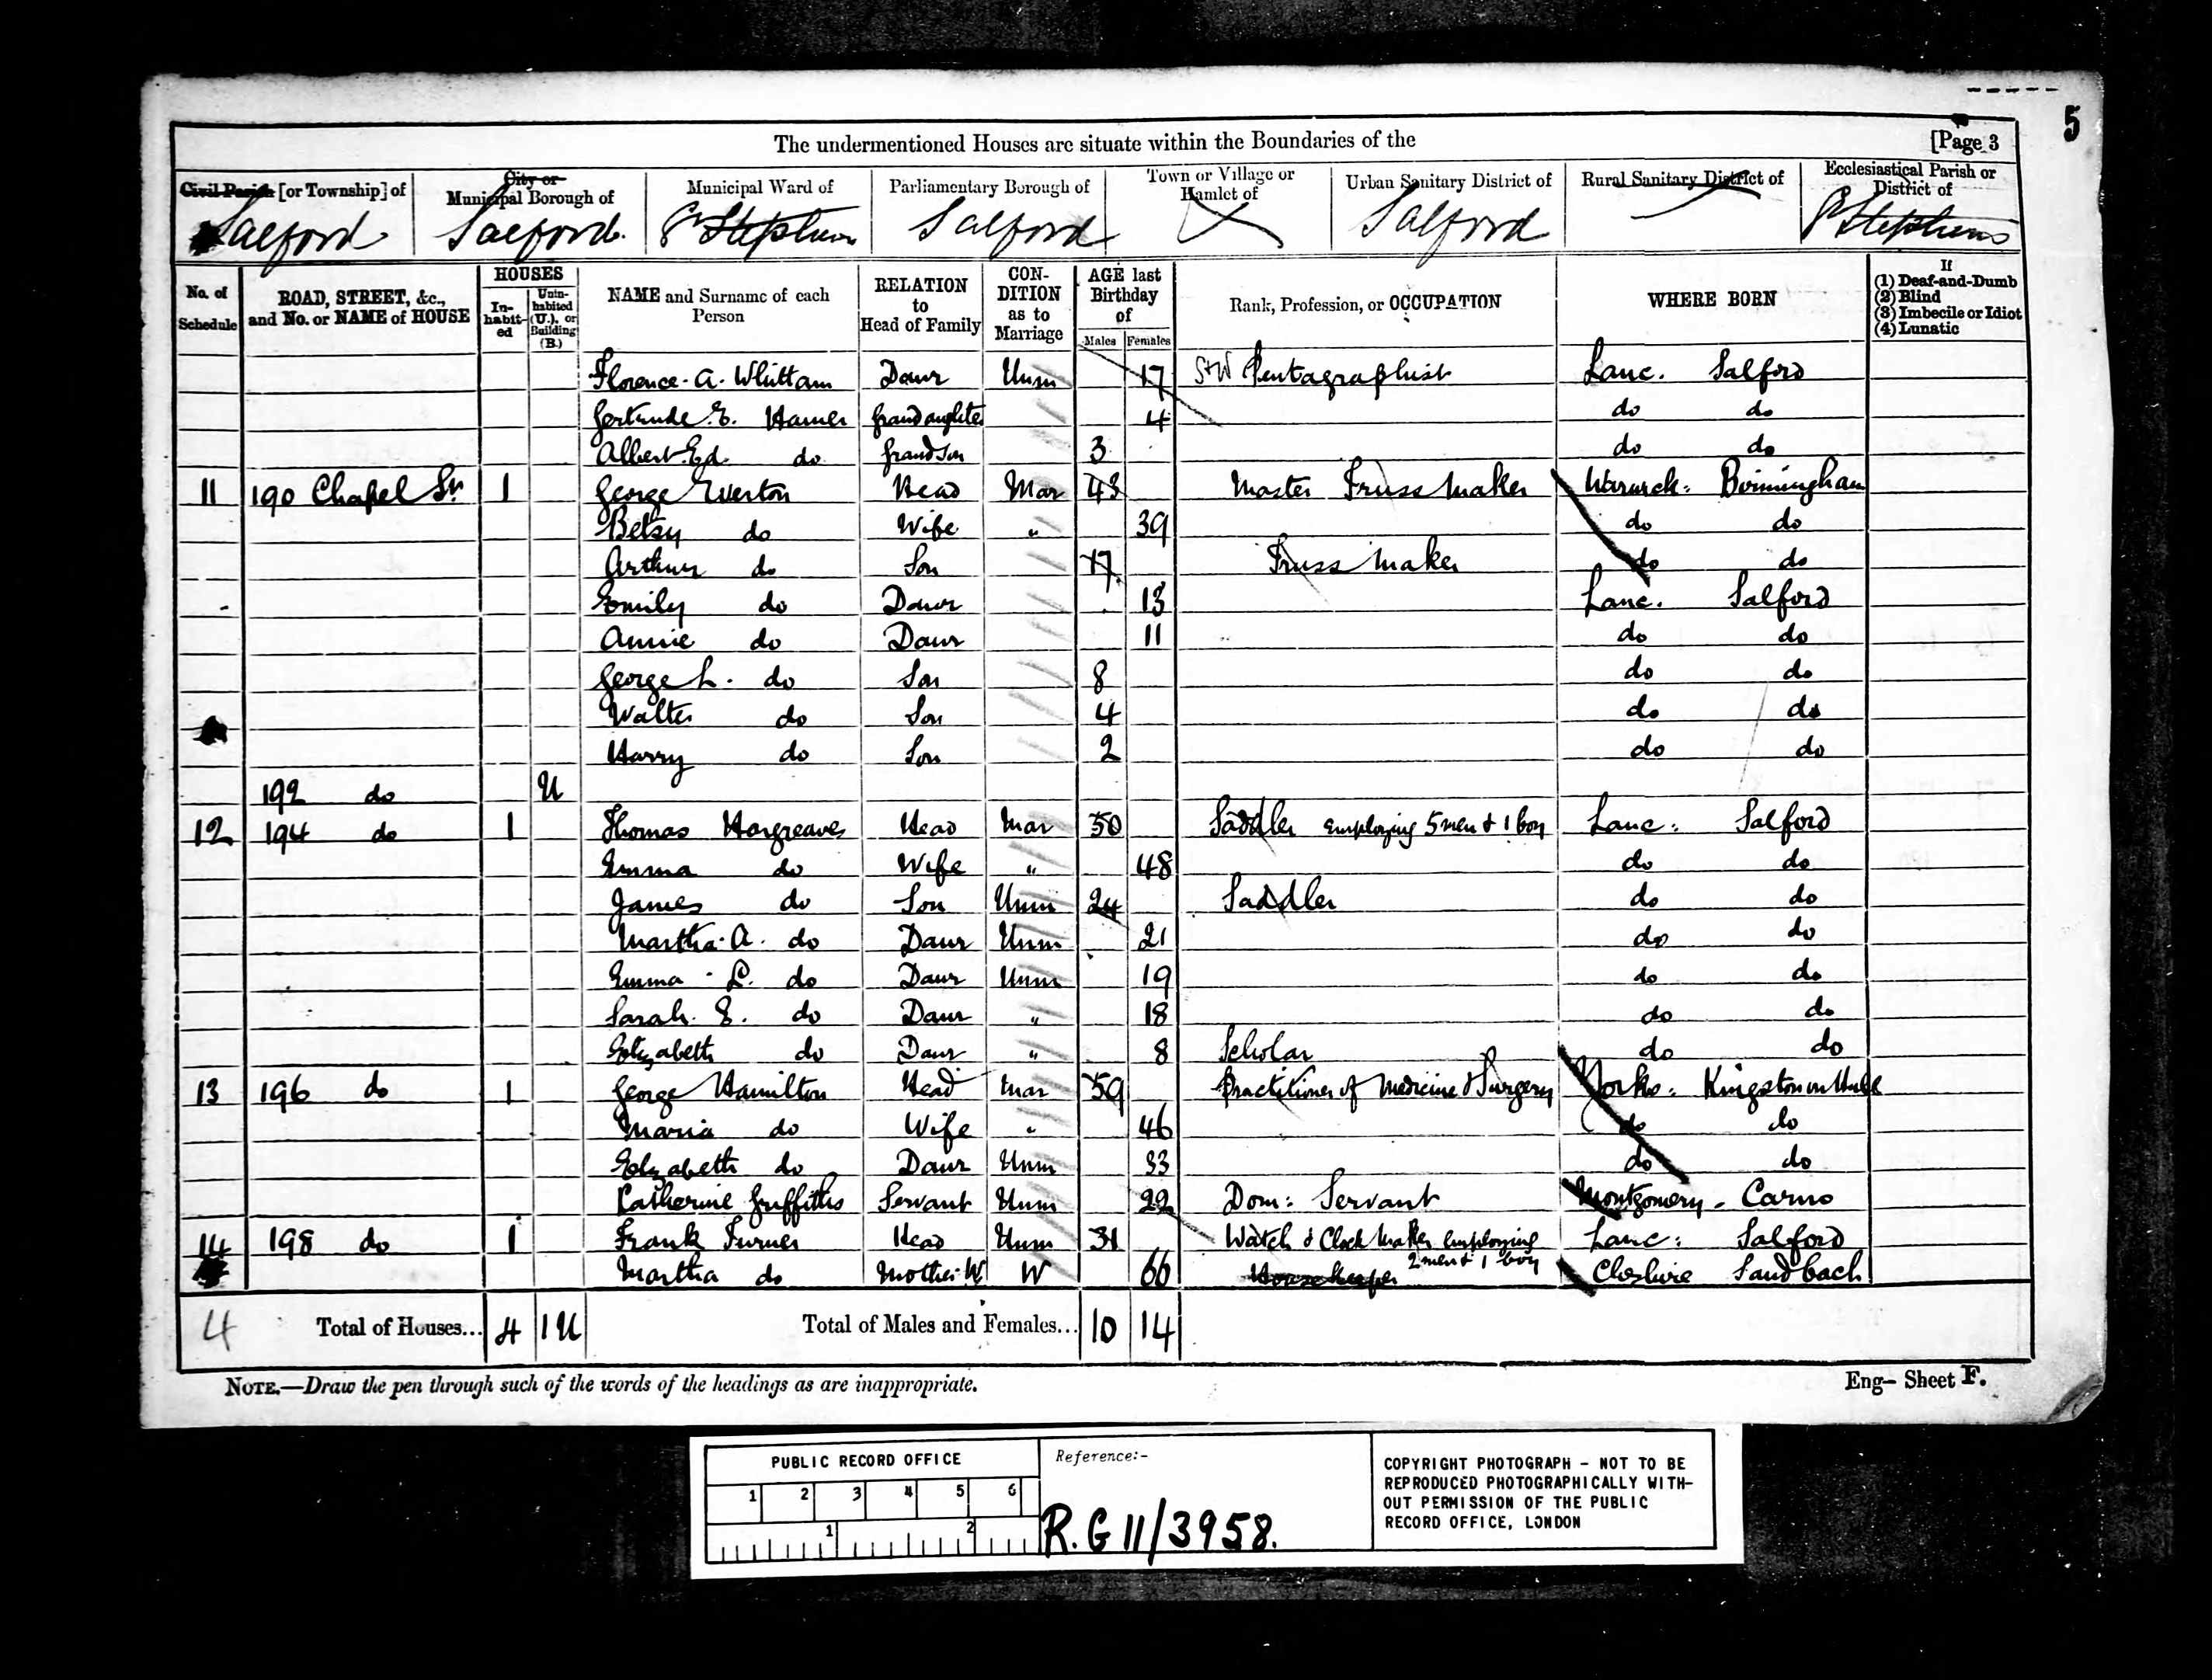 5
The undermentioned Houses are situate within the Boundaries of the [Page 3
Civil Parish [or Township] of City or Municipal Borough of Municipal Ward of Parliamentary Borough of Town or Village or Hamlet of Urban Sanitary District of Rural Sanitary District of Ecclesiastical Parish or District of
Salford Salford St Stephens Salford Salford St Stephens
No. of Schedule ROAD, STREET, &c., and No. or NAME of HOUSE HOUSES Inhabited Uninhabited (U.), or Building (B.) NAME and Surname of each Person RELATION to Head of Family CONDITION as to Marriage AGE last Birthday of Males Females Rank, Profession, or OCCUPATION WHERE BORN If (1) Deaf-and-Dumb (2) Blind (3) Imbecile or Idiot (4) Lunatic
Florence. A. Whittam Daur Unm 17 Pentagraphist Lanc. Salford
Gertrude. E. Hamer Grandaughter 4 do do
Albert. Ed. do Grandson 3 do do
11 190 Chapel St 1 George Everton Head Mar 43 Master Truss Maker Warwck: Birmingham
Betsy do Wife " 39 do do
Arthur do Son 17 Truss Maker do do
Emily do Daur 13 Lanc. Salford
Annie do Daur 11 do do
George L. do Son 8 do do
Walter do Son 4 do do
Harry do Son 2 do do
192 do U
12 194 do 1 Thomas Hargreaves Head Mar 50 Saddler employing 5 men & 1 boy Lanc: Salford
Emma do Wife " 48 do do
James do Son Unm 24 Saddler do do
Martha. A. do Daur Unm 21 do do
Emma L. do Daur Unm 19 do do
Sarah. E. do Daur " 18 do do
Elizabeth do Daur " 8 Scholar do do
13 196 do 1 George Hamilton Head Mar 59 Practitioner of Medicine & Surgery Yorks: Kingston on Hull
Maria do Wife " 46 do do
Elizabeth do Daur Unm 33 do do
Catherine Griffiths Servant Unm 22 Dom: Servant Montgomery - Carno
14 198 do 1 Frank Turner Head Unm 31 Watch & Clock Maker employing 2 men & 1 boy Lanc: Salford
Martha do Mother W 66 Housekeeper Cheshire Sandbach
4 Total of Houses... 4 1 U Total of Males and Females... 10 14
NOTE.—Draw the pen through such of the words of the headings as are inappropriate. Eng— Sheet F.
PUBLIC RECORD OFFICE
1 2 3 4 5 6
1 2
Reference:-
R.G 11/3958.
COPYRIGHT PHOTOGRAPH - NOT TO BE
REPRODUCED PHOTOGRAPHICALLY WITH-
OUT PERMISSION OF THE PUBLIC
RECORD OFFICE, LONDON